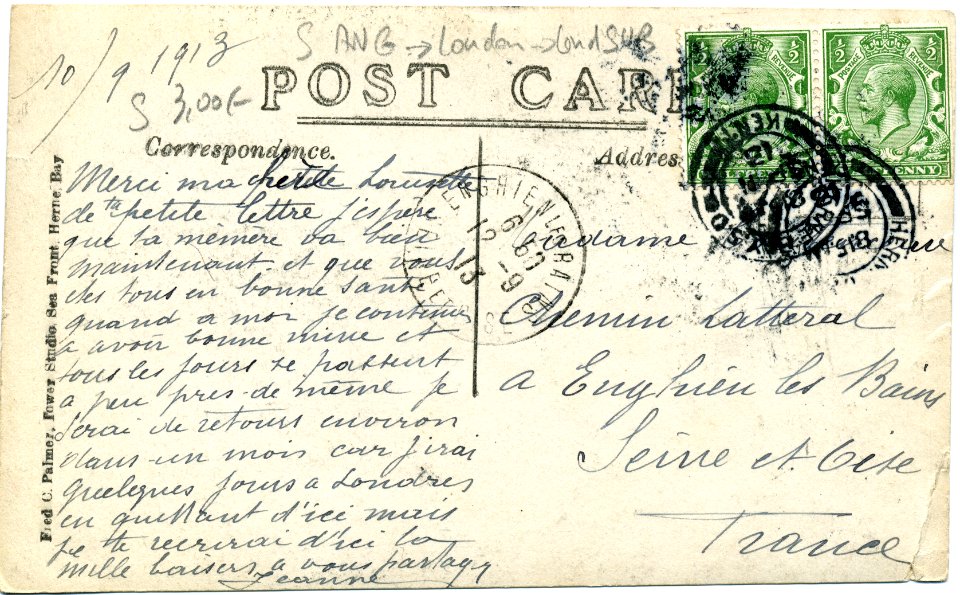 10/9 1913
S ANG → London → Lond SUB
S 3,00/-
POST CARD
Correspondence.
Address
Fred C. Palmer, Tower Studio, Sea Front, Herne Bay
Merci ma chérie Louisette
de ta petite lettre j'espère
que ta mémère va bien
maintenant et que vous
êtes tous en bonne santé
quand a moi je continue
a avoir bonne mine et
tous les jours se passent
a peu pres de même je
serai de retours environ
dans un mois car j'irai
quelques jours a Londres
en quittant d'ici mais
je te recrirai d'ici la
mille baisers a vous partager
Jeanne
Madame
Chemin Latteral
a Enghien les Bains
Seine et Oise
France
ENGHIEN
12 -9
13
½ ½
POSTAGE REVENUE
½ ½
POSTAGE REVENUE
PENNY
HERNE
KENT